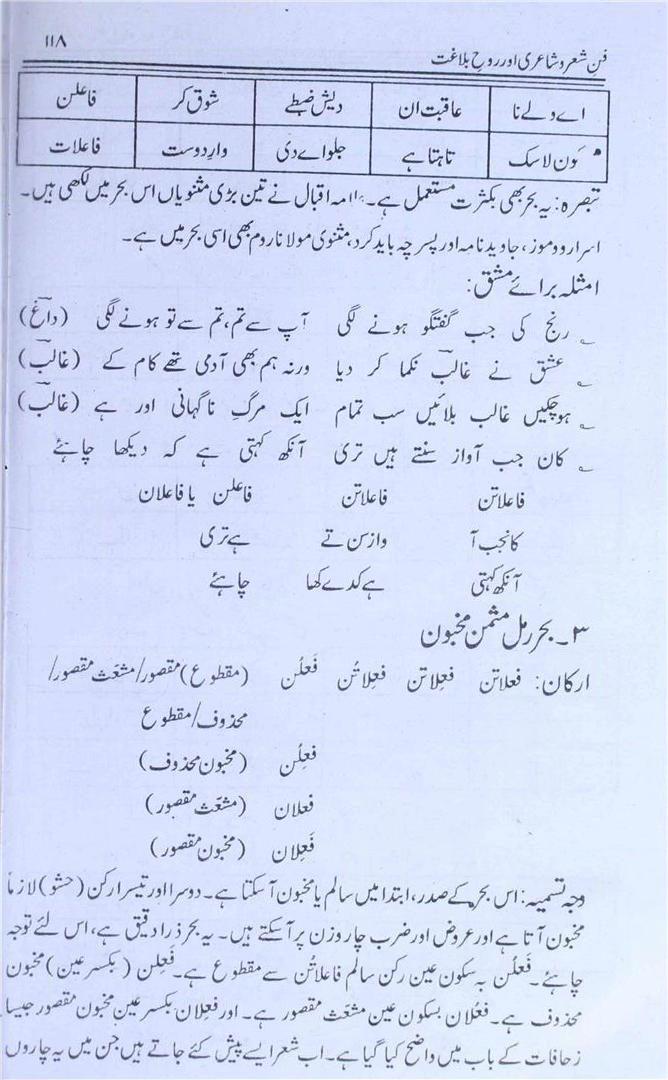 ۱۱۸
فنِ شعر و شاعری اور روحِ بلاغت
اے و لے نا عاقبت ان دیش ضبطے شوق کر فاعلن
کون لاسک تاہتاہے جلواے دی وارِ دوست فاعلات
تبصرہ: یہ بحر بھی بکثرت مستعمل ہے۔ علامہ اقبال نے تین بڑی مثنویاں اس بحر میں لکھی ہیں۔
اسرار و رموز، جاوید نامہ اور پسِ چہ باید کرد، مثنوی مولانا روم بھی اسی بحر میں ہے۔
امثلہ برائے مشق:
؎ رنج کی جب گفتگو ہونے لگی آپ سے تم، تم سے تو ہونے لگی (داغؔ)
؎ عشق نے غالبؔ نکما کر دیا ورنہ ہم بھی آدمی تھے کام کے (غالبؔ)
؎ ہوچکیں غالب بلائیں سب تمام ایک مرگِ ناگہانی اور ہے (غالبؔ)
؎ کان جب آواز سنتے ہیں تری آنکھ کہتی ہے کہ دیکھا چاہئے
فاعلاتن فاعلاتن فاعلن یا فاعلان
کانجب آ وازسن تے ہےتری
آنکھ کہتی ہےکدے کھا چاہئے
۳۔ بحر رمل مثمن مخبون
ارکان: فعلاتن فعِلاتن فعِلاتُن فَعلُن (مقطوع) مقصور/مشعّث مقصور/
محذوف/مقطوع
فَعِلُن (مخبون محذوف)
فعلان (مشعّث مقصور)
فَعِلان (مخبون مقصور)
وجہ تسمیہ: اس بحر کے صدر، ابتدا میں سالم یا مخبون آسکتا ہے۔ دوسرا اور تیسرا رکن (حشو) لازماً
مخبون آتا ہے اور عروض اور ضرب چار وزن پر آسکتے ہیں۔ یہ بحر ذرا دقیق ہے، اس لئے توجہ
چاہئے۔ فَعلُن بہ سکون عین رکن سالم فاعلاتُن سے مقطوع ہے۔ فَعِلن (بکسر عین) مخبون
محذوف ہے۔ فعْلان بسکون عین مشعّث مقصور ہے۔ اور فعِلان بکسر عین مخبون مقصور جیسا
زحافات کے باب میں واضح کیا گیا ہے۔ اب شعر ایسے پیش کئے جاتے ہیں جن میں یہ چاروں